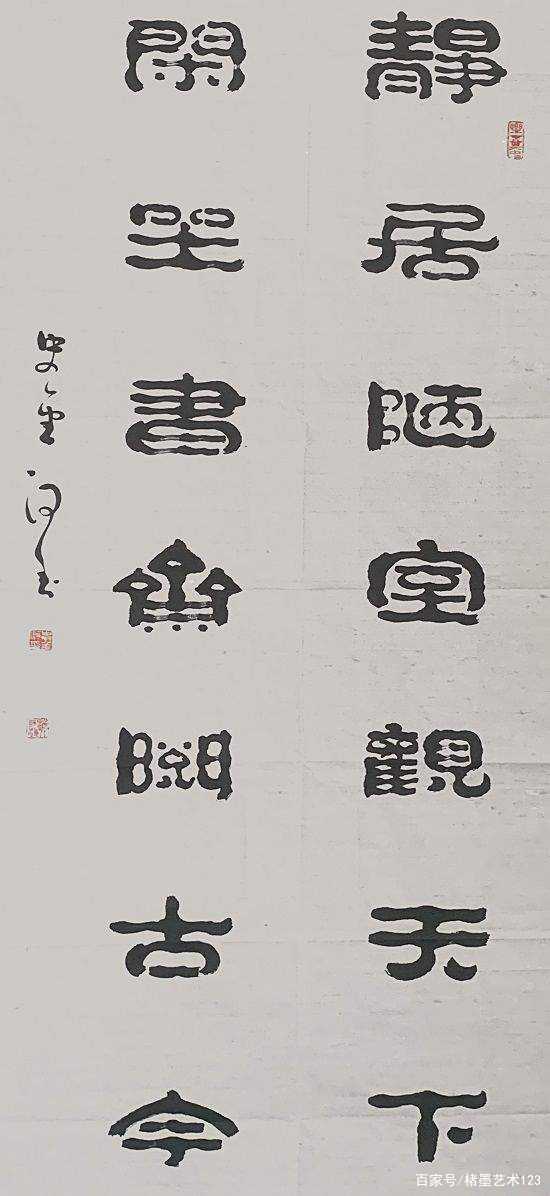 靜居陋室觀天下
閑坐書齋閱古今
百家号/楮墨艺术123